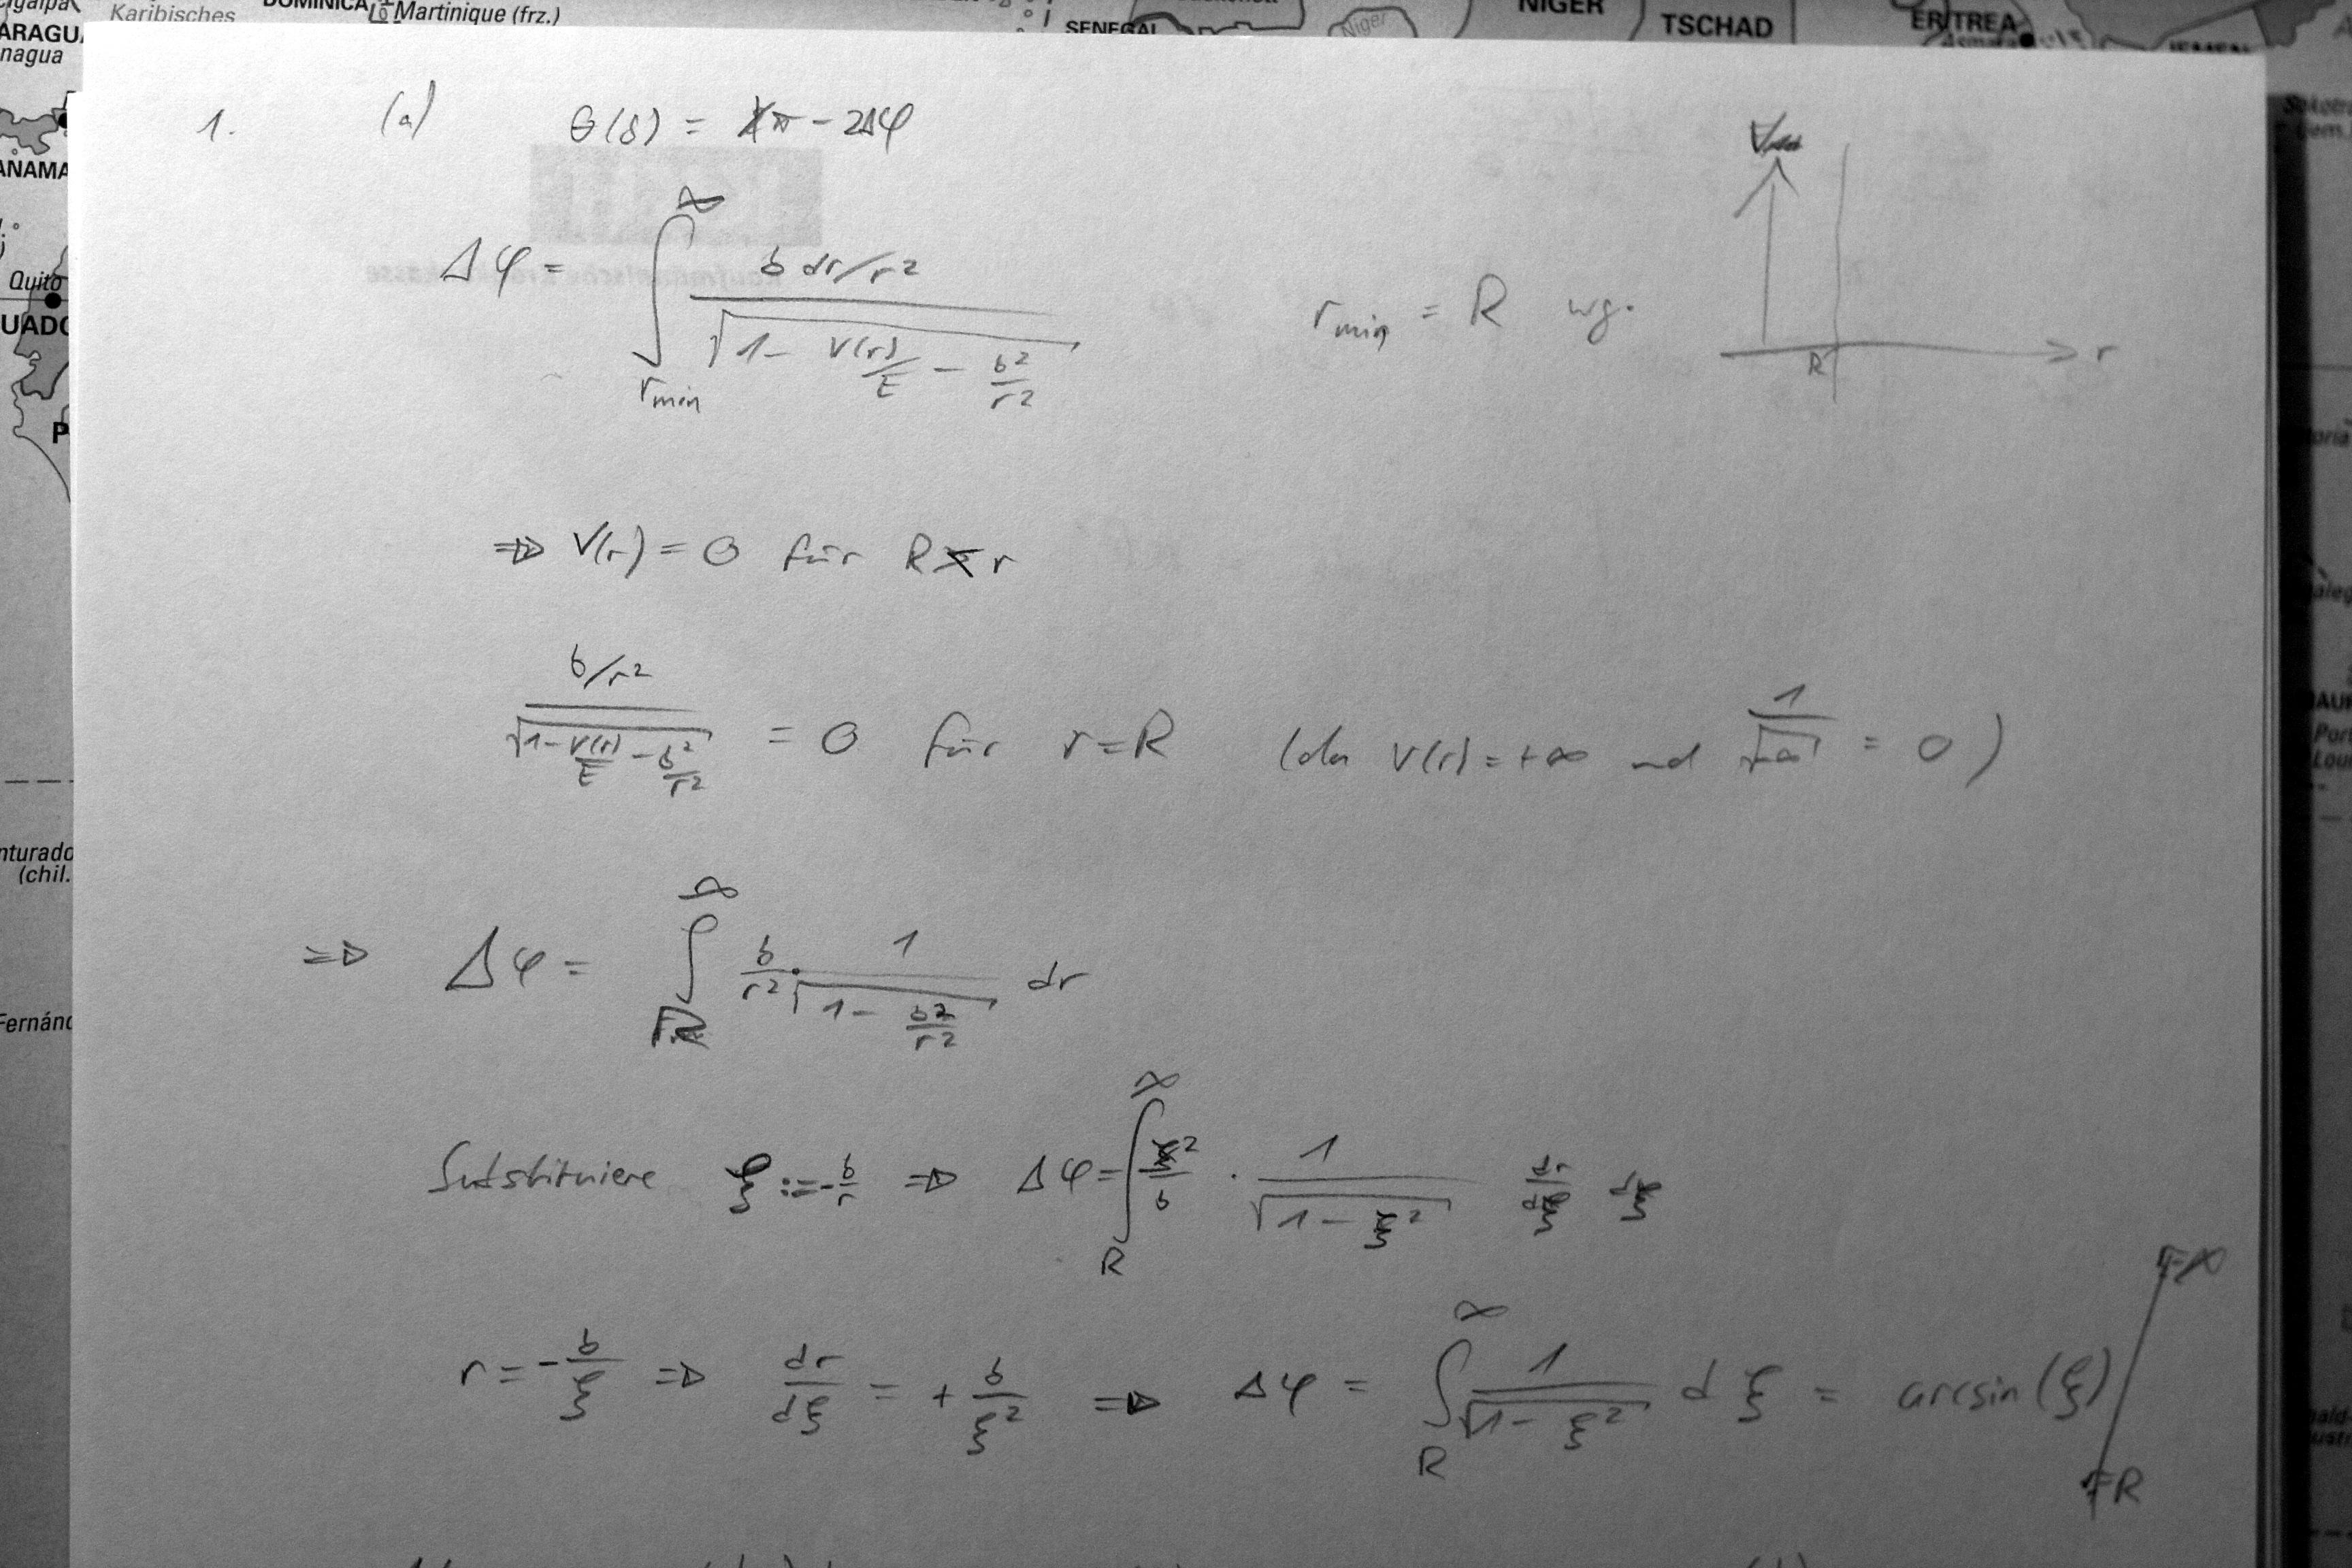 Karibisches
DOMINICA
Martinique (frz.)
SENEGAL
Niger
NIGER
TSCHAD
ERITREA
Asmara
JEMEN
ARAGU
nagua
ANAMA
Quito
UADO
P
nturado
(chil.
Fernánd
1. (a) θ(b) = π - 2Δφ
Δφ = ∫_{r_min}^{∞} (b dr/r²) / √(1 - V(r)/E - b²/r²)
r_min = R wg.
V
R
r
⇒ V(r) = 0 für R < r
(b/r²) / √(1 - V(r)/E - b²/r²) = 0 für r = R (da V(r) = +∞ und 1/√(-∞) = 0)
⇒ Δφ = ∫_{R}^{∞} b/r² · 1/√(1 - b²/r²) dr
Substituiere ξ := -b/r ⇒ Δφ = ∫_{R}^{∞} ξ²/b · 1/√(1 - ξ²) dr/dξ dξ
r = -b/ξ ⇒ dr/dξ = + b/ξ² ⇒ Δφ = ∫_{R}^{∞} 1/√(1 - ξ²) dξ = arcsin(ξ) |_{r=R}^{r=∞}